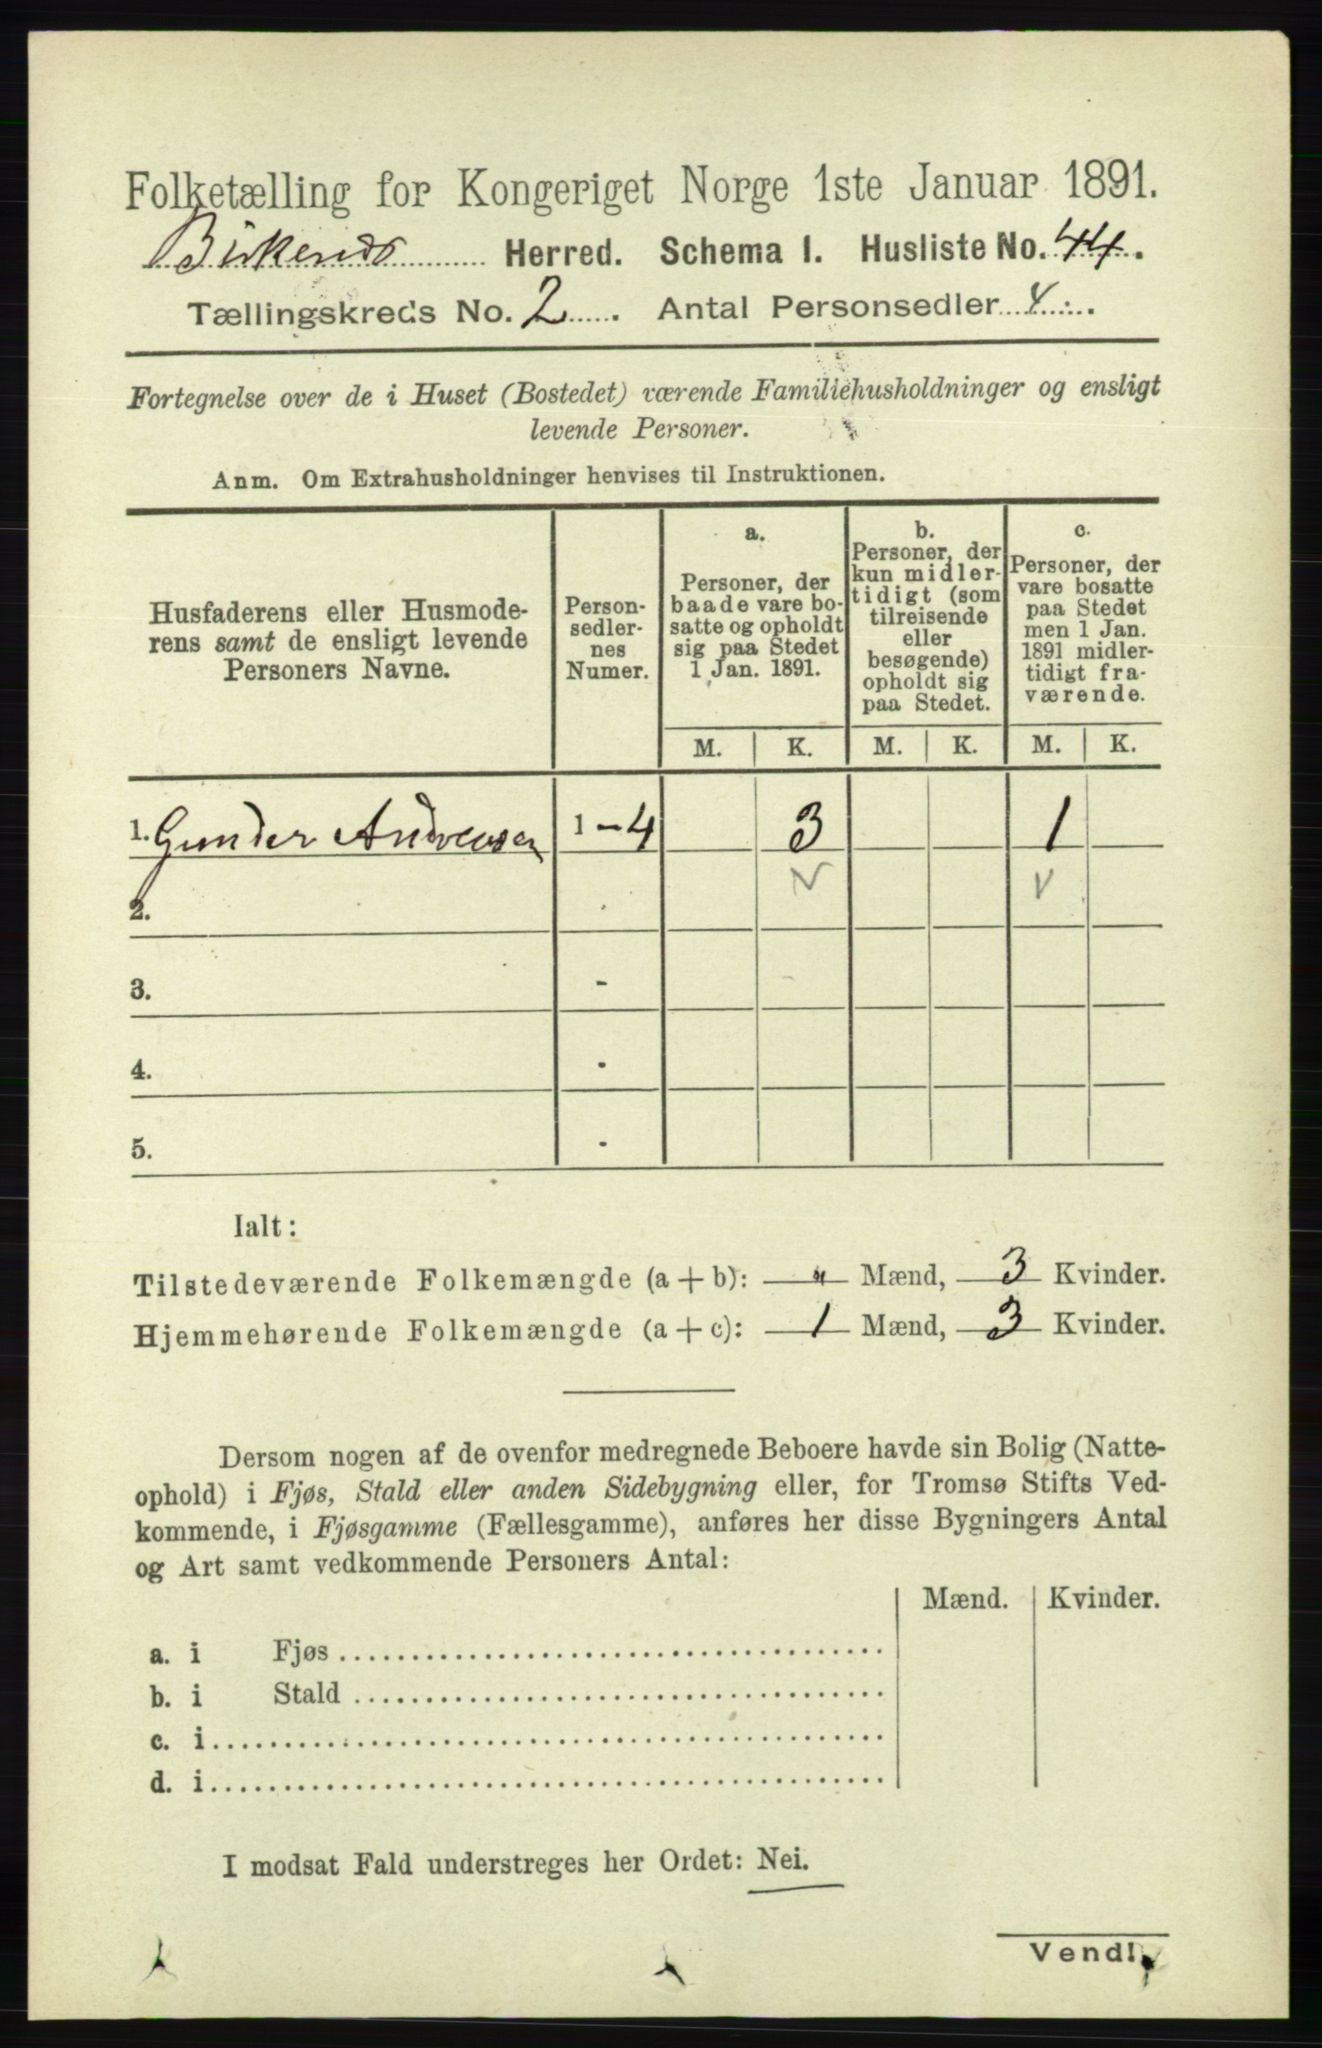 Folketælling for Kongeriget Norge 1ste Januar 1891.
Birkenes Herred. Schema I. Husliste No. 44.
Tællingskreds No. 2. Antal Personsedler 4.
Fortegnelse over de i Huset (Bostedet) værende Familiehusholdninger og ensligt
levende Personer.
Anm. Om Extrahusholdninger henvises til Instruktionen.
Husfaderens eller Husmode-
rens samt de ensligt levende
Personers Navne.
Person-
sedler-
nes
Numer.
a.
Personer, der
baade vare bo-
satte og opholdt
sig paa Stedet
1 Jan. 1891.
b.
Personer, der
kun midler-
tidigt (som
tilreisende
eller
besøgende)
opholdt sig
paa Stedet.
c.
Personer, der
vare bosatte
paa Stedet
men 1 Jan.
1891 midler-
tidigt fra-
værende.
M. K. M. K. M. K.
1. Gunder Andreasen 1-4 3 1
2.
3. -
4. -
5. -
Ialt:
Tilstedeværende Folkemængde (a + b): " Mænd, 3 Kvinder.
Hjemmehørende Folkemængde (a + c): 1 Mænd, 3 Kvinder.
Dersom nogen af de ovenfor medregnede Beboere havde sin Bolig (Natte-
ophold) i Fjøs, Stald eller anden Sidebygning eller, for Tromsø Stifts Ved-
kommende, i Fjøsgamme (Fællesgamme), anføres her disse Bygningers Antal
og Art samt vedkommende Personers Antal:
Mænd. Kvinder.
a. i Fjøs
b. i Stald
c. i
d. i
I modsat Fald understreges her Ordet: Nei.
Vend!